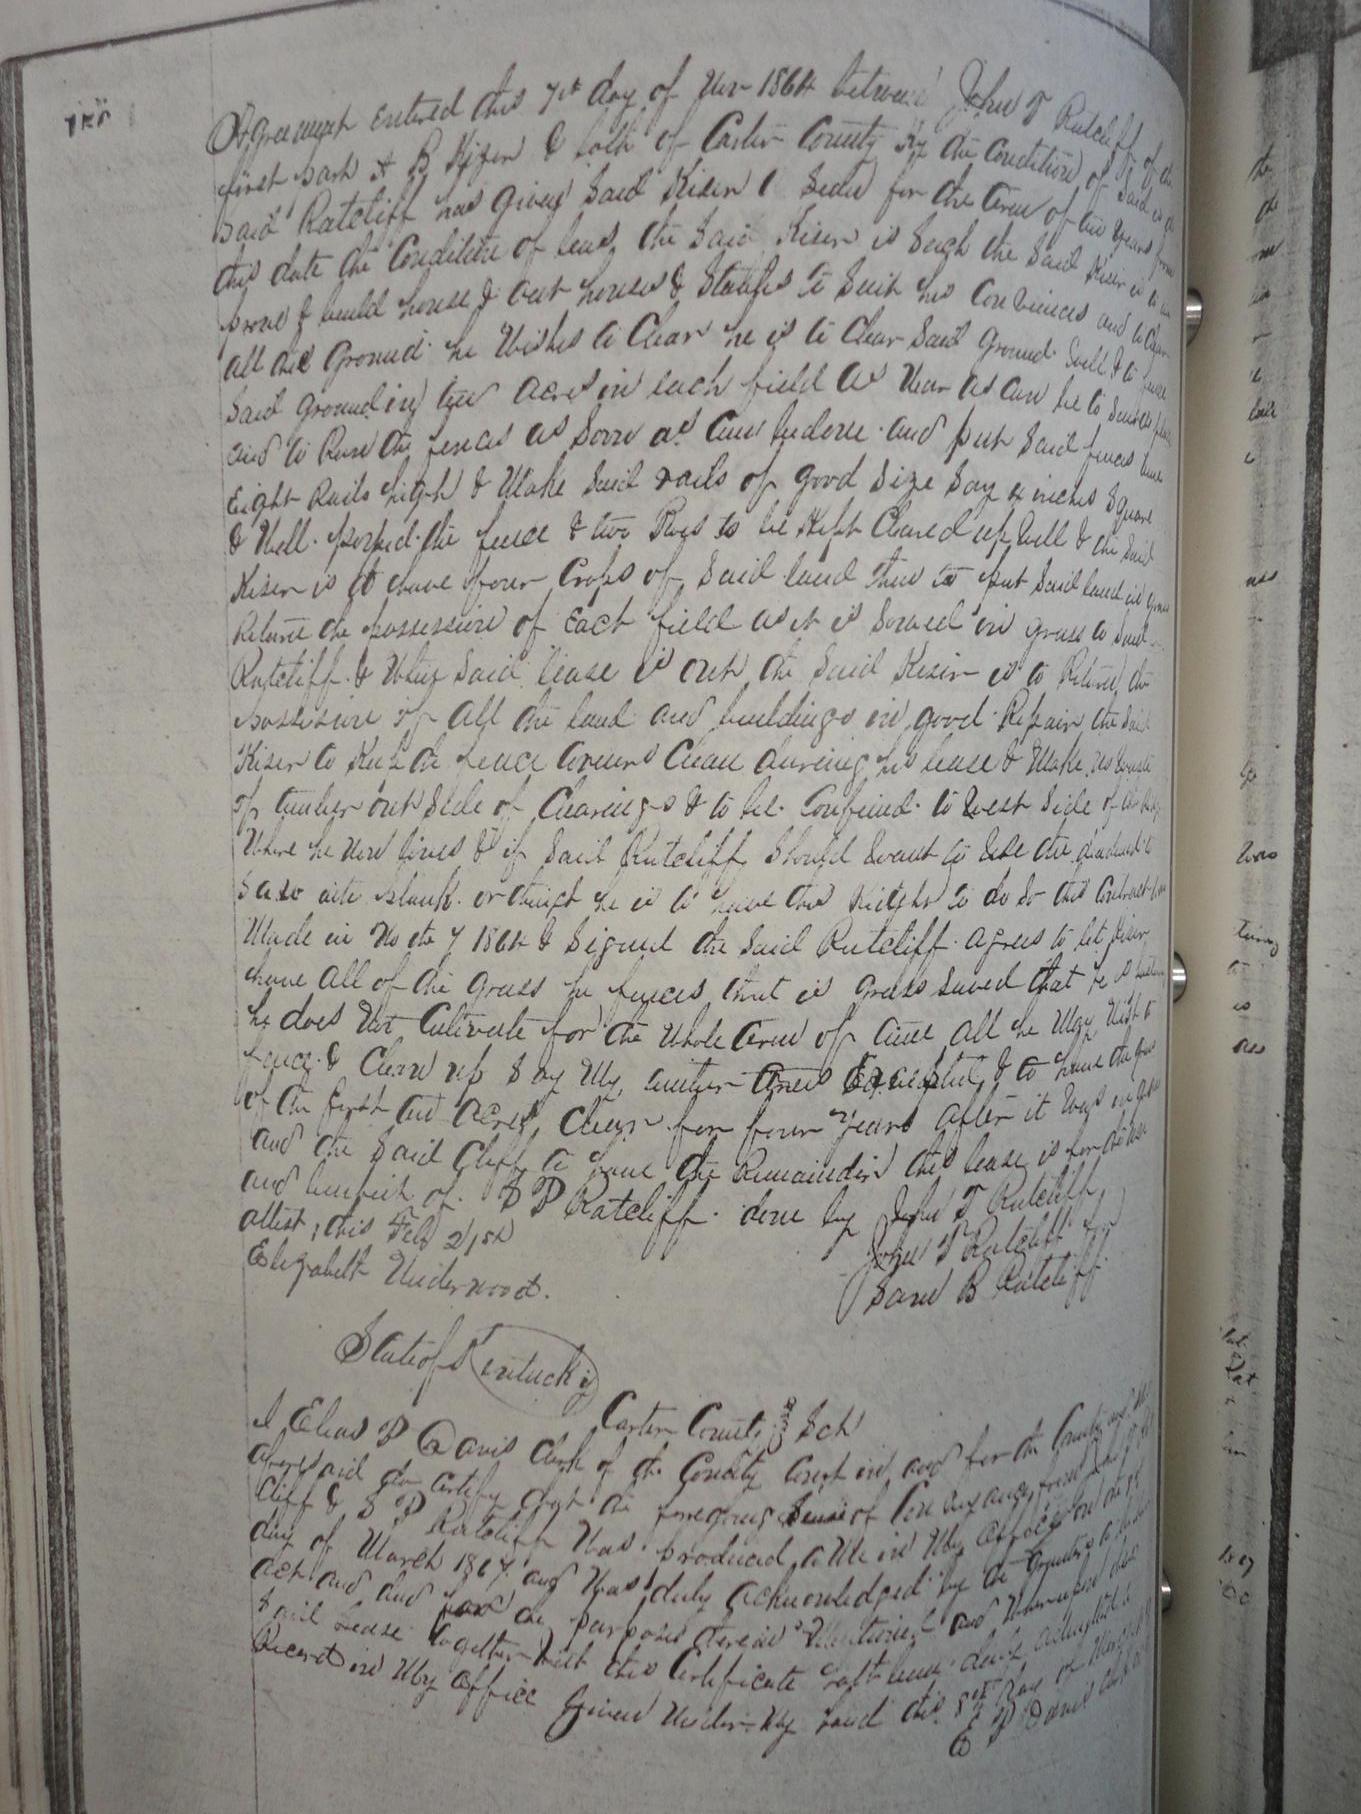 Agreement entered this 7th day of Nov 1864 between John T Ratcliff of the
first part & B Kizer & both of Carter County Ky the Condition of Said is
Said Ratcliff has given Said Kiser for the term of ten years from
this date the Condition of leas the Said Kiser is Such the Said Kiser is to im
prove & build house & out houses & Stables to Suit his Conviences and to Clear
all the Ground he Wishes to Clear he is to Clear Said Ground Well & to fence
Said ground in ten acres in each field as Near as can be to
and to Run the fences as Soon as Can be done and put Said fences
Eight Rails high & Make Said rails of good Size Say 4 inches Square
& Well the fence & two Rows to be Kept Cleared up Well & the Said
Kiser is to have four Crops of Said land then to put Said land in grass
Return the possession of Each field as it is Sowed in grass to Said
Ratcliff & When Said lease is out the Said Kiser is to Return the
possession of all the land and buildings in good Repair the Said
Kiser to Keep the fence Corners Clean during his lease & Make no waste
of timber out Side of Clearings & to be Confined to West Side of the
Where he Now lives & if Said Ratcliff Should want to Use the
Saw into plank or things he is to have the Rights to do So this Contract
Made in No the 7 1864 & Signed the Said Ratcliff agrees to let Kiser
have all of the grass he fences that is grass Sowed that he
he does Not Cultivate for the Whole term of time all he May Wish to
fence & Clean up Say My Excepted & to have the
of the first ten acres Clear for four Years after it Was in grass
and the Said Cliff to have the Remainder this lease is for the use
and benefit of S P Ratcliff done by John T Ratcliff
attest, this Feb 21st John T Ratcliff
Elizabeth Underwood. B Ratcliff
State of Kentucky
Carter County Sct
I Elias P Davis Clerk of the County Court in and for the County and
aforesaid do certify that the foregoing of Conveyance from
Cliff & S P Ratcliff Was produced to Me in My office on the
day of March 1867 and Was duly acknowledged by the Grantor to be
act and deed for the purposes therein Mentioned and Whereupon the
Said Lease together with this Certificate hath been duly admitted to
Record in My office Given Under My hand this 8th Day of March
E P Davis Clerk